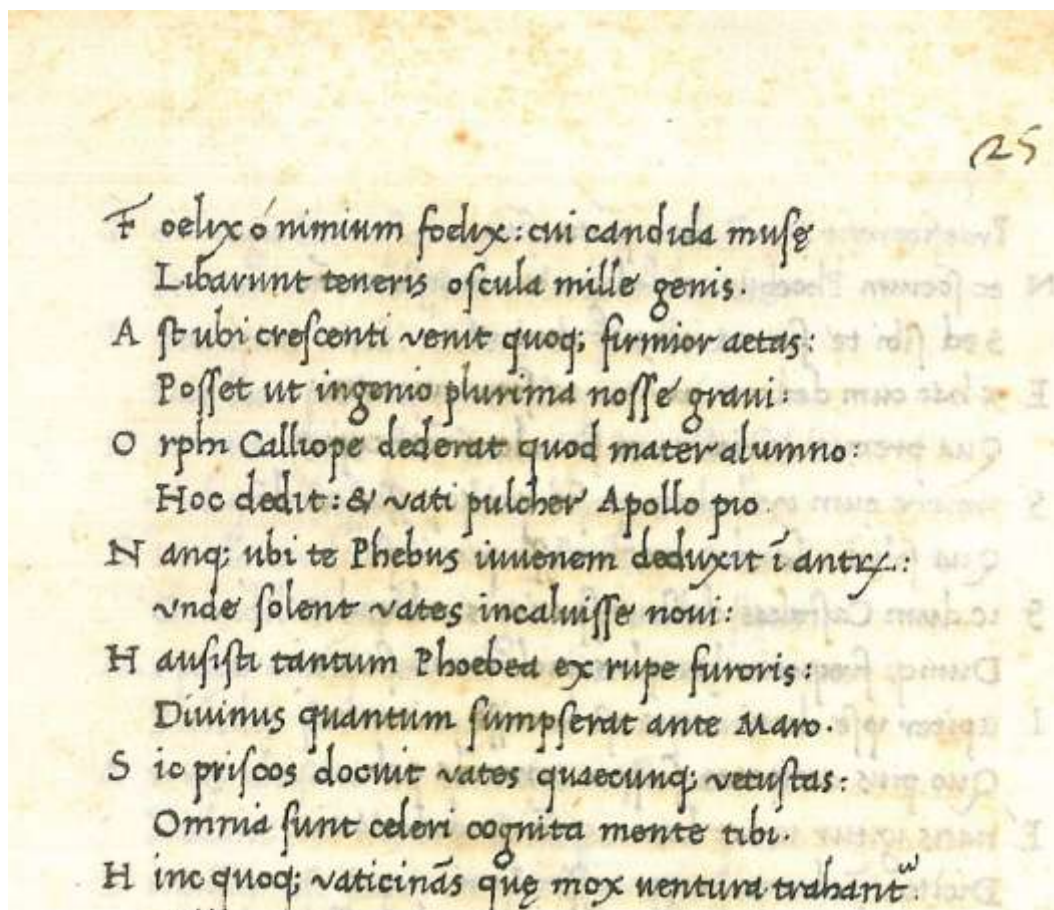 25
Foelix ó nimium foelix: cui candida musę
Libarunt teneris oscula mille genis.
Ast ubi crescenti venit quoq; firmior aetas:
Posset ut ingenio plurima nosse graui:
Orphi Calliope dederat quod mater alumno:
Hoc dedit: & vati pulcher Apollo pio.
Nanq; ubi te Phebus iuuenem deduxit ī
vnde solent vates incaluisse noui:
Hausisti tantum Phoebea ex rupe furoris:
Diuinus quantum sumpserat ante Maro.
Sic priscos docuit vates quaecunq; vetustas:
Omnia sunt celeri cognita mente tibi.
Hinc quoq; vaticinās quę mox uentura trahant